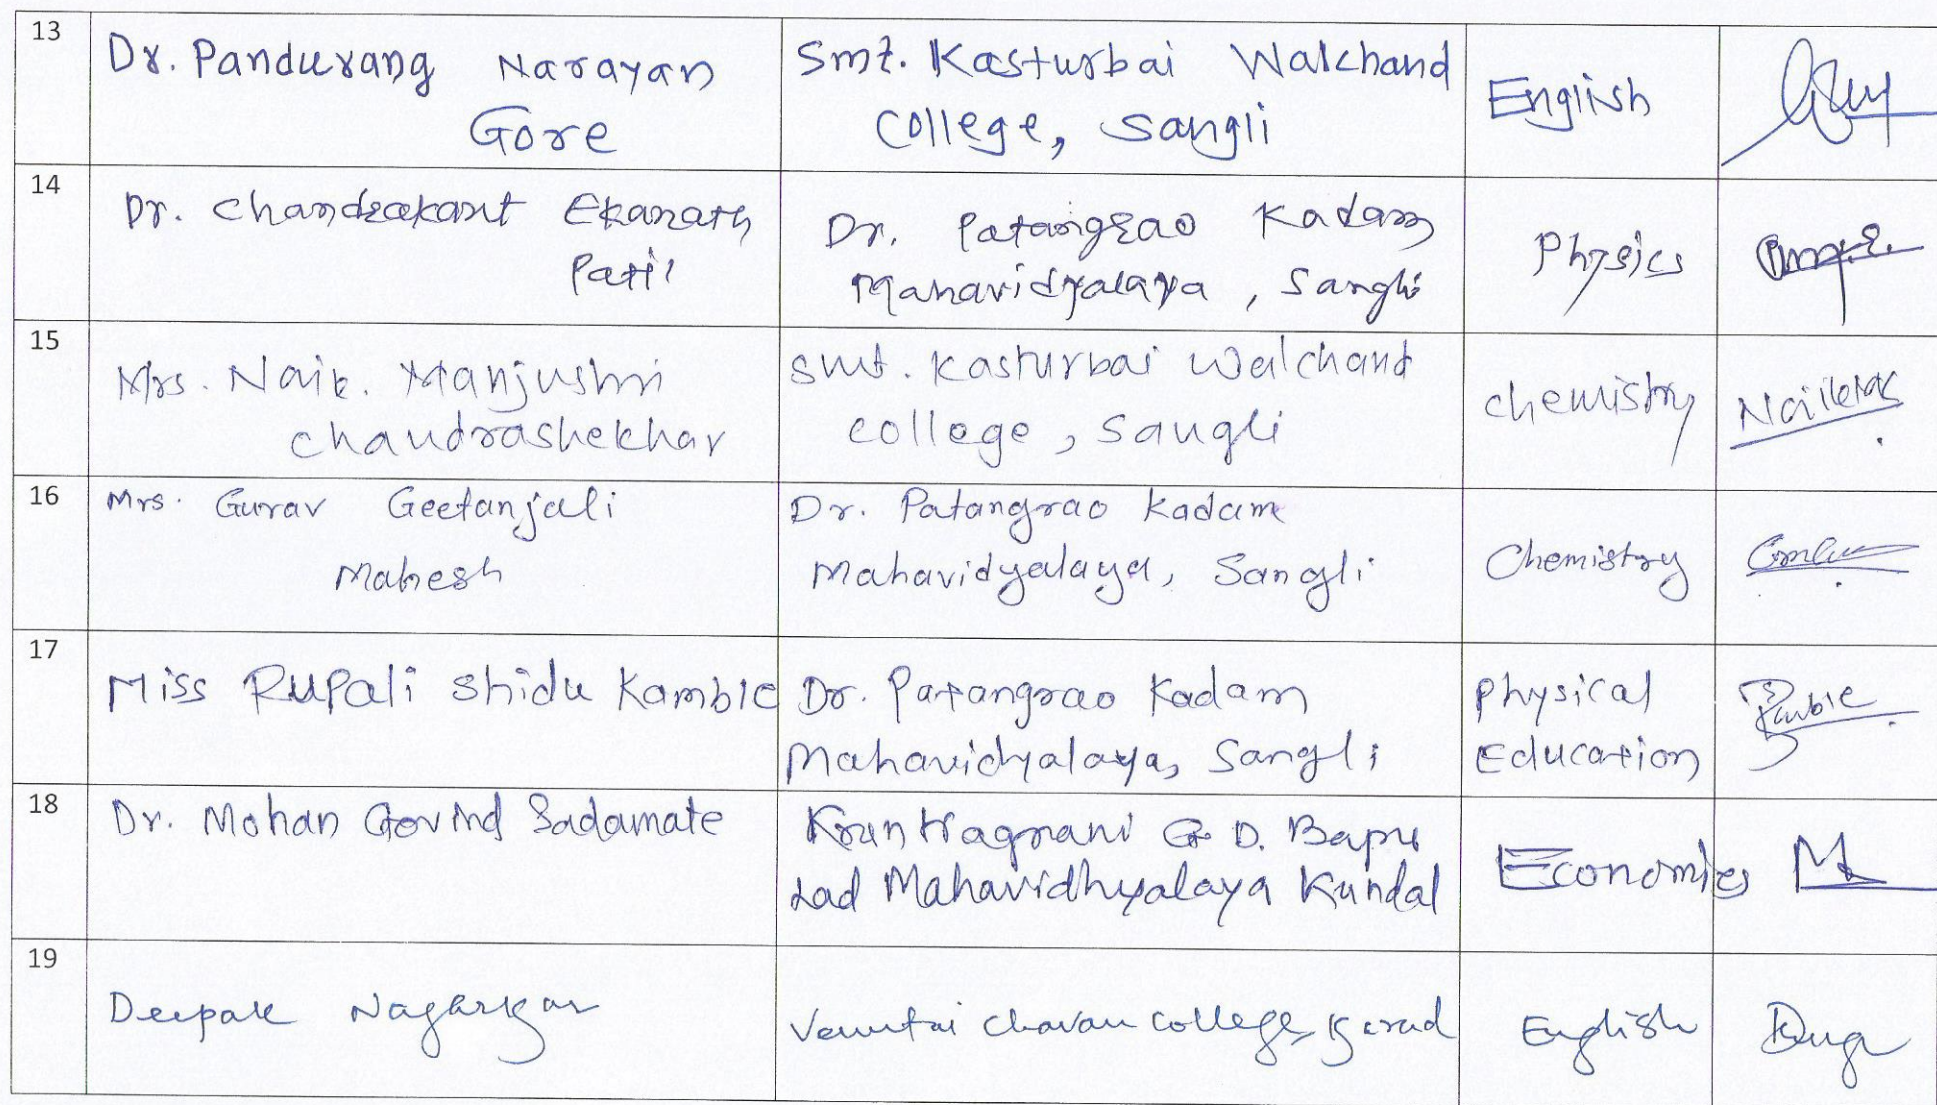 13
Dr. Pandurang Narayan
Gore
Smt. Kasturbai Walchand
College, Sangli
English
14
Dr. Chandrakant Ekanath
Patil
Dr. Patangrao Kadam
Mahavidyalaya, Sangli
Physics
15
Mrs. Naik. Manjushri
Chandrashekhar
Smt. Kasturbai Walchand
College, Sangli
Chemistry
16
Mrs. Gurav Geetanjali
Mahesh
Dr. Patangrao Kadam
Mahavidyalaya, Sangli
Chemistry
17
Miss Rupali Shidu Kamble
Dr. Patangrao Kadam
Mahavidyalaya, Sangli
Physical
Education
18
Dr. Mohan Govind Sadamate
Krantiagrani G. D. Bapu
Lad Mahavidhyalaya Kundal
Economics
19
Deepak Nagarkar
Venutai Chavan College, Karad
English